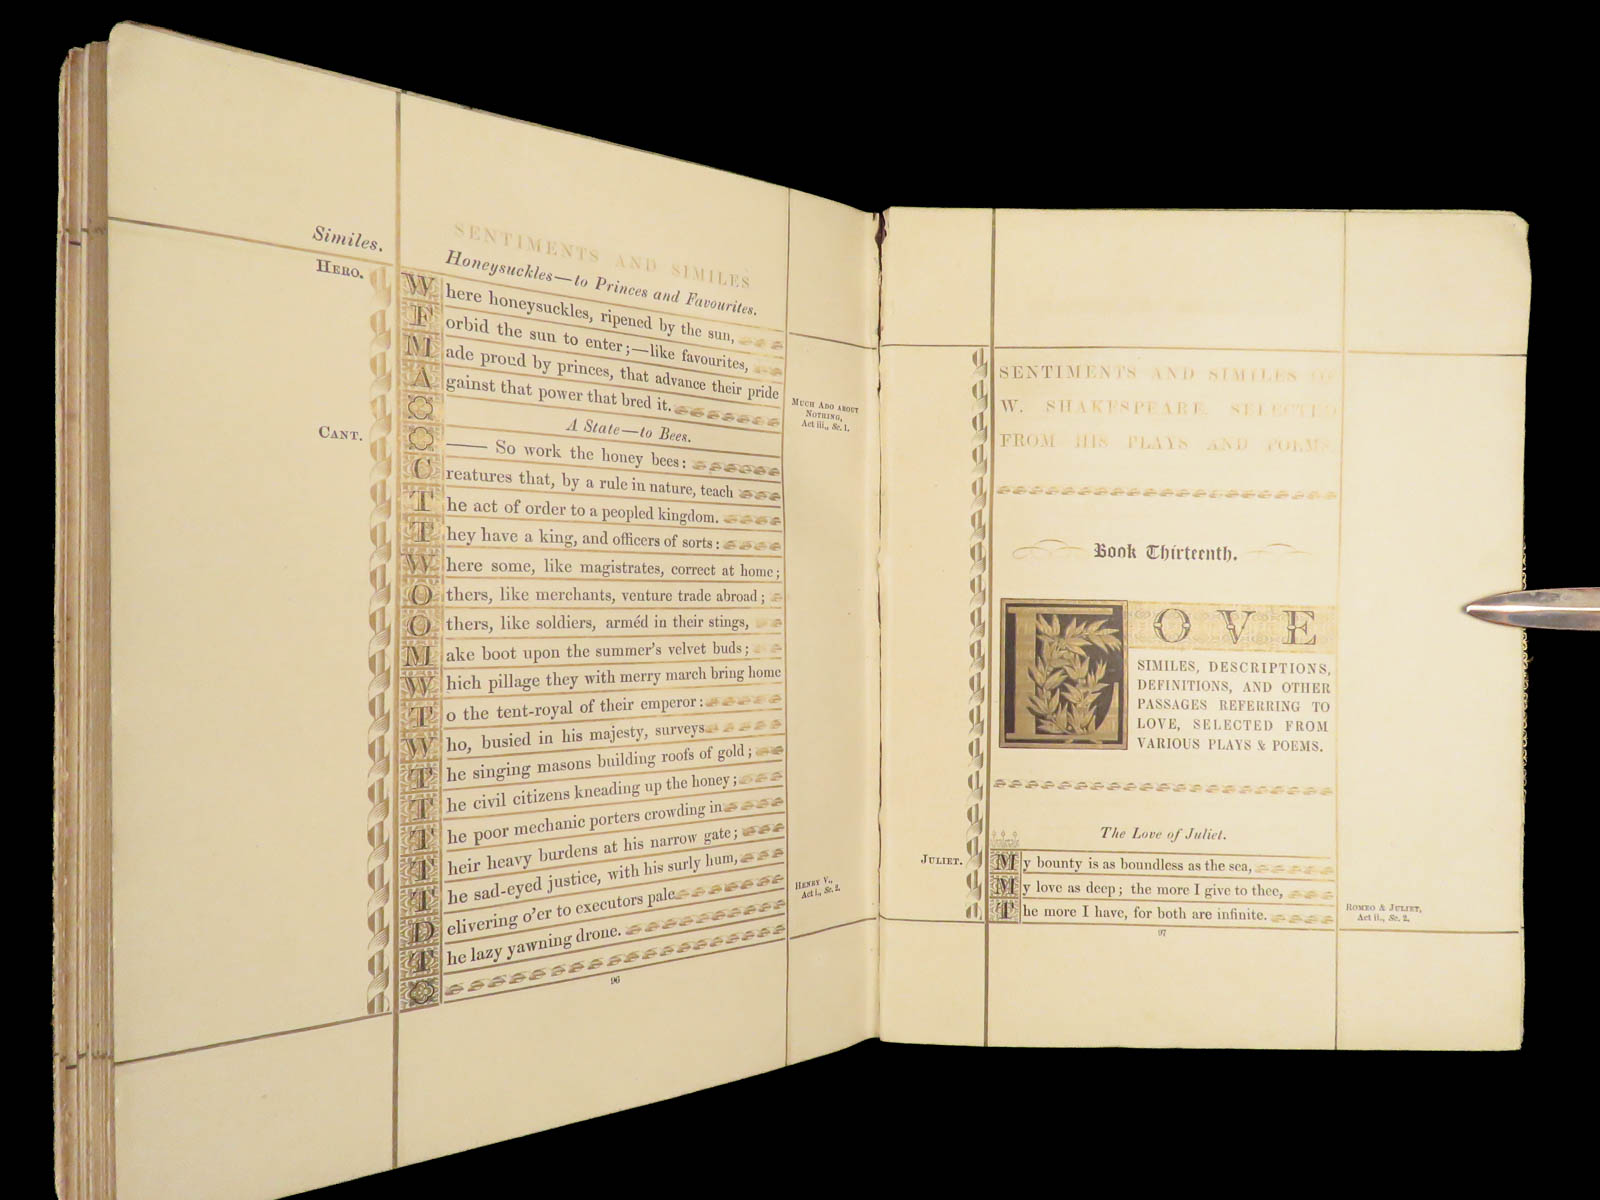 SENTIMENTS AND SIMILES
Similes.
Honeysuckles—to Princes and Favourites.
HERO.
Where honeysuckles, ripened by the sun,
Forbid the sun to enter;—like favourites,
Made proud by princes, that advance their pride
Against that power that bred it.
MUCH ADO ABOUT
NOTHING,
Act iii., Sc. 1.
A State—to Bees.
CANT.
—— So work the honey bees:
Creatures that, by a rule in nature, teach
The act of order to a peopled kingdom.
They have a king, and officers of sorts:
Where some, like magistrates, correct at home;
Others, like merchants, venture trade abroad;
Others, like soldiers, arméd in their stings,
Make boot upon the summer's velvet buds;
Which pillage they with merry march bring home
To the tent-royal of their emperor:
Who, busied in his majesty, surveys
The singing masons building roofs of gold;
The civil citizens kneading up the honey;
The poor mechanic porters crowding in
Their heavy burdens at his narrow gate;
The sad-eyed justice, with his surly hum,
Delivering o'er to executors pale
The lazy yawning drone.
HENRY V.,
Act i., Sc. 2.
96
SENTIMENTS AND SIMILES OF
W. SHAKESPEARE, SELECTED
FROM HIS PLAYS AND POEMS.
Book Thirteenth.
LOVE
SIMILES, DESCRIPTIONS,
DEFINITIONS, AND OTHER
PASSAGES REFERRING TO
LOVE, SELECTED FROM
VARIOUS PLAYS & POEMS.
The Love of Juliet.
JULIET.
My bounty is as boundless as the sea,
My love as deep; the more I give to thee,
The more I have, for both are infinite.
ROMEO & JULIET,
Act ii., Sc. 2.
97